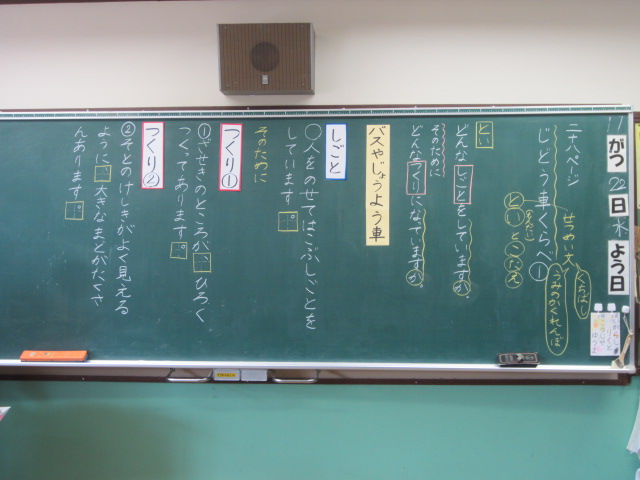 11がつ22日水よう日
くちばし
うみのかくれんぼ
せつめい文
二十八ページ
じどう車くらべ①
とい
こたえ
とい
どんなしごとをしていますか。
そのために
どんなつくりになっていますか。
バスやじょうよう車
しごと
○人をのせてはこぶしごとを
しています。
そのために
つくり①
①ざせきのところが、ひろく
つくってあります。
つくり②
②そとのけしきがよく見える
ように、大きなまどがたくさ
んあります。